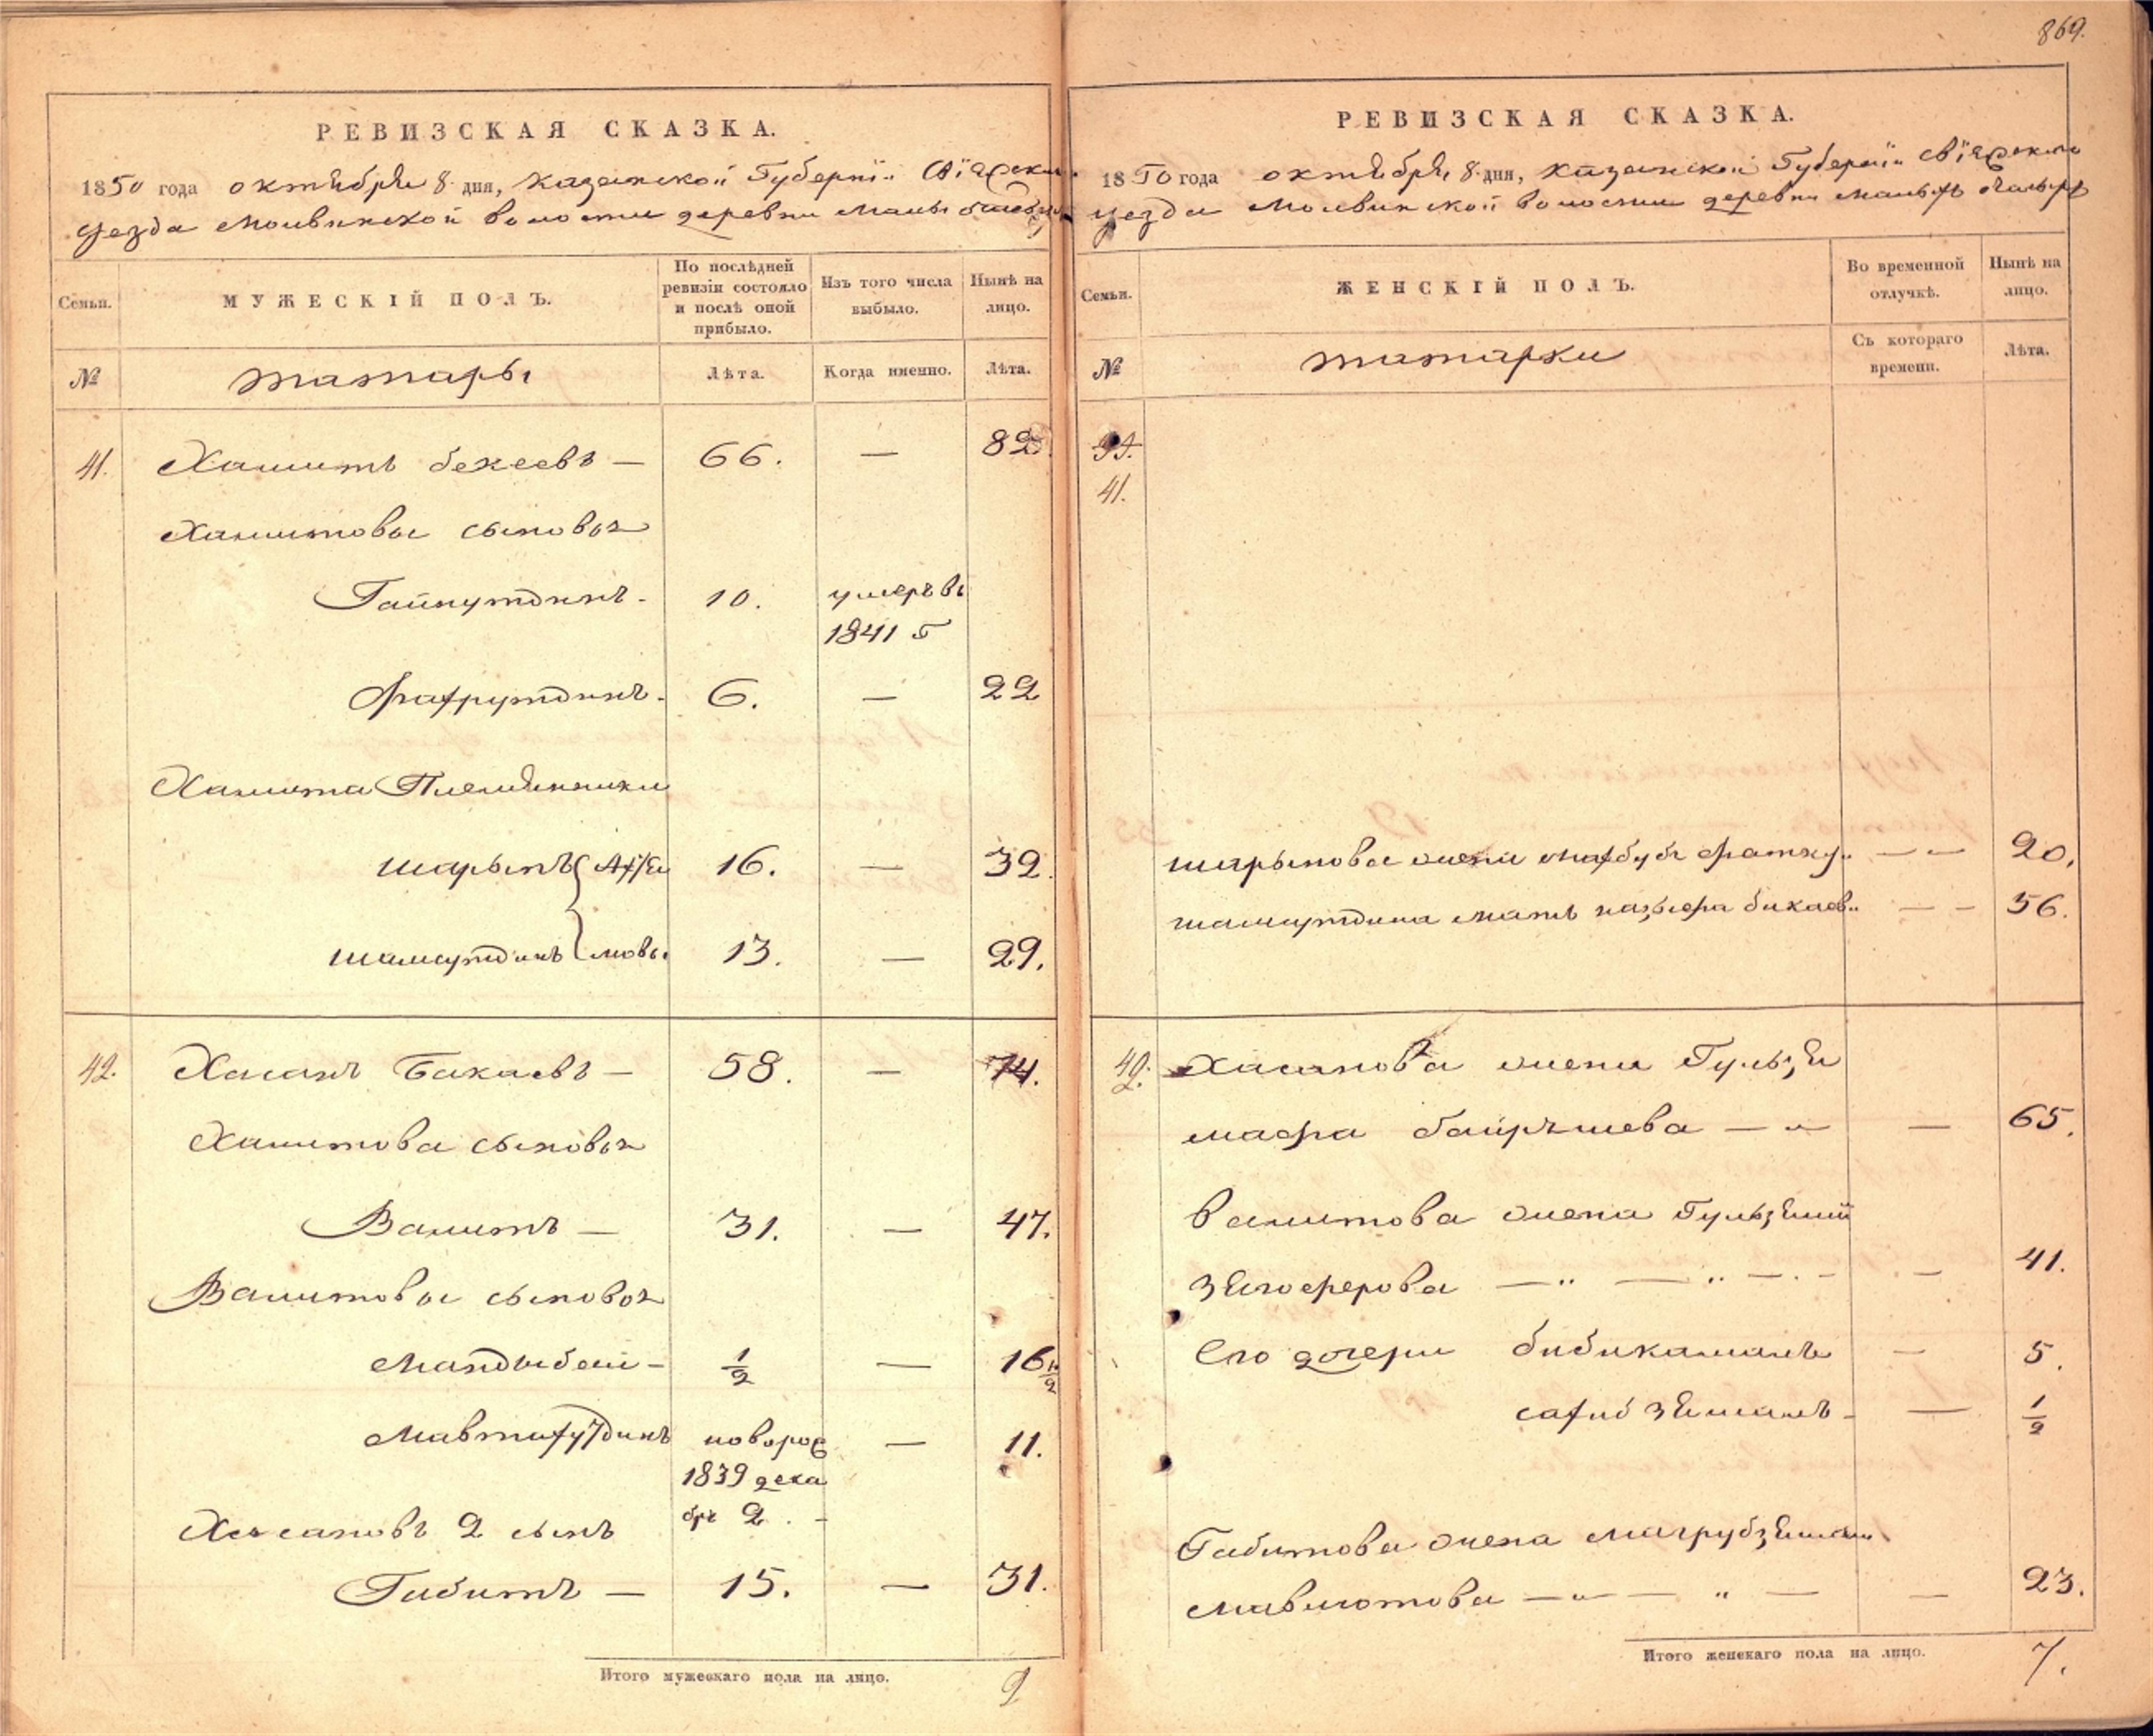 869.
РЕВИЗСКАЯ СКАЗКА.
1850 года октября 8 дня, Казанской Губернiи Свiяжск
уезда Молвинской волости деревни Малы
Семьи.
МУЖЕСКIЙ ПОЛЪ.
По послѣдней ревизiи состояло и послѣ оной прибыло.
Изъ того числа выбыло.
Нынѣ на лицо.
№
татары
Лѣта.
Когда именно.
Лѣта.
41. Хамитъ бекеевъ — 66. — 82
Хамитовы сыновья
Гайнутдинъ - 10. умеръ въ
1841 г
Фахрутдинъ - 6. — 22
Хамита Племянники
шарыпъ 16. — 32.
шамсутдинъ 13. — 29.
42. Хасанъ Бакаевъ — 58. — 74.
Хамитова сыновья
Вамитъ — 31. — 47.
Вамитовы сыновья
1/2 — 16 1/2
новорож — 11.
1839 дека
бря 2. -
Хасановъ 2 сынъ
Габитъ — 15. — 31.
Итого мужескаго пола на лицо. 9
РЕВИЗСКАЯ СКАЗКА.
1850 года октября 8 дня, Казанской Губернiи Свiяжского
уезда Молвинской волости деревни Малых
Семьи.
ЖЕНСКIЙ ПОЛЪ.
Во временной отлучкѣ.
Нынѣ на лицо.
№
татарки
Съ котораго времени.
Лѣта.
41.
шарыпова жена — „ — 20.
шамсутдина мать — - 56.
42. Хасанова жена Гульзя
мафа — „ — — 65.
Вамитова жена
— „ — „ — . - — 41.
Его дочери бибикамалъ — 5.
- — 1/2
Габитова жена
— „ — „ — — 23.
Итого женскаго пола на лицо. 7.